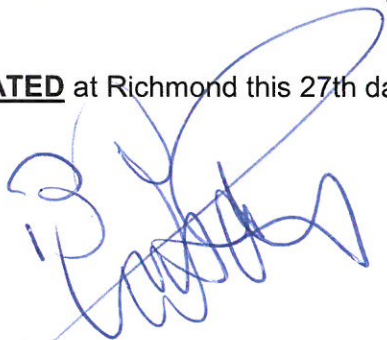 ATED at Richmond this 27th da